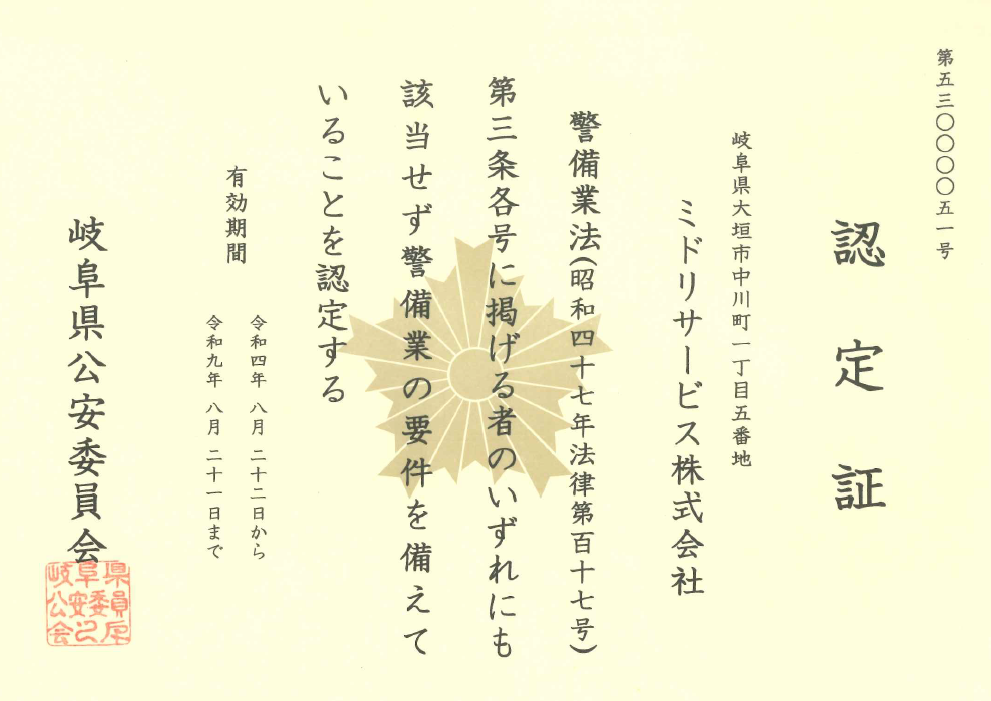 第五三〇〇〇〇五一号
認定証
岐阜県大垣市中川町一丁目五番地
ミドリサービス株式会社
警備業法(昭和四十七年法律第百十七号)
第三条各号に掲げる者のいずれにも
該当せず警備業の要件を備えて
いることを認定する
有効期間
令和四年 八月 二十二日から
令和九年 八月 二十一日まで
岐阜県公安委員会